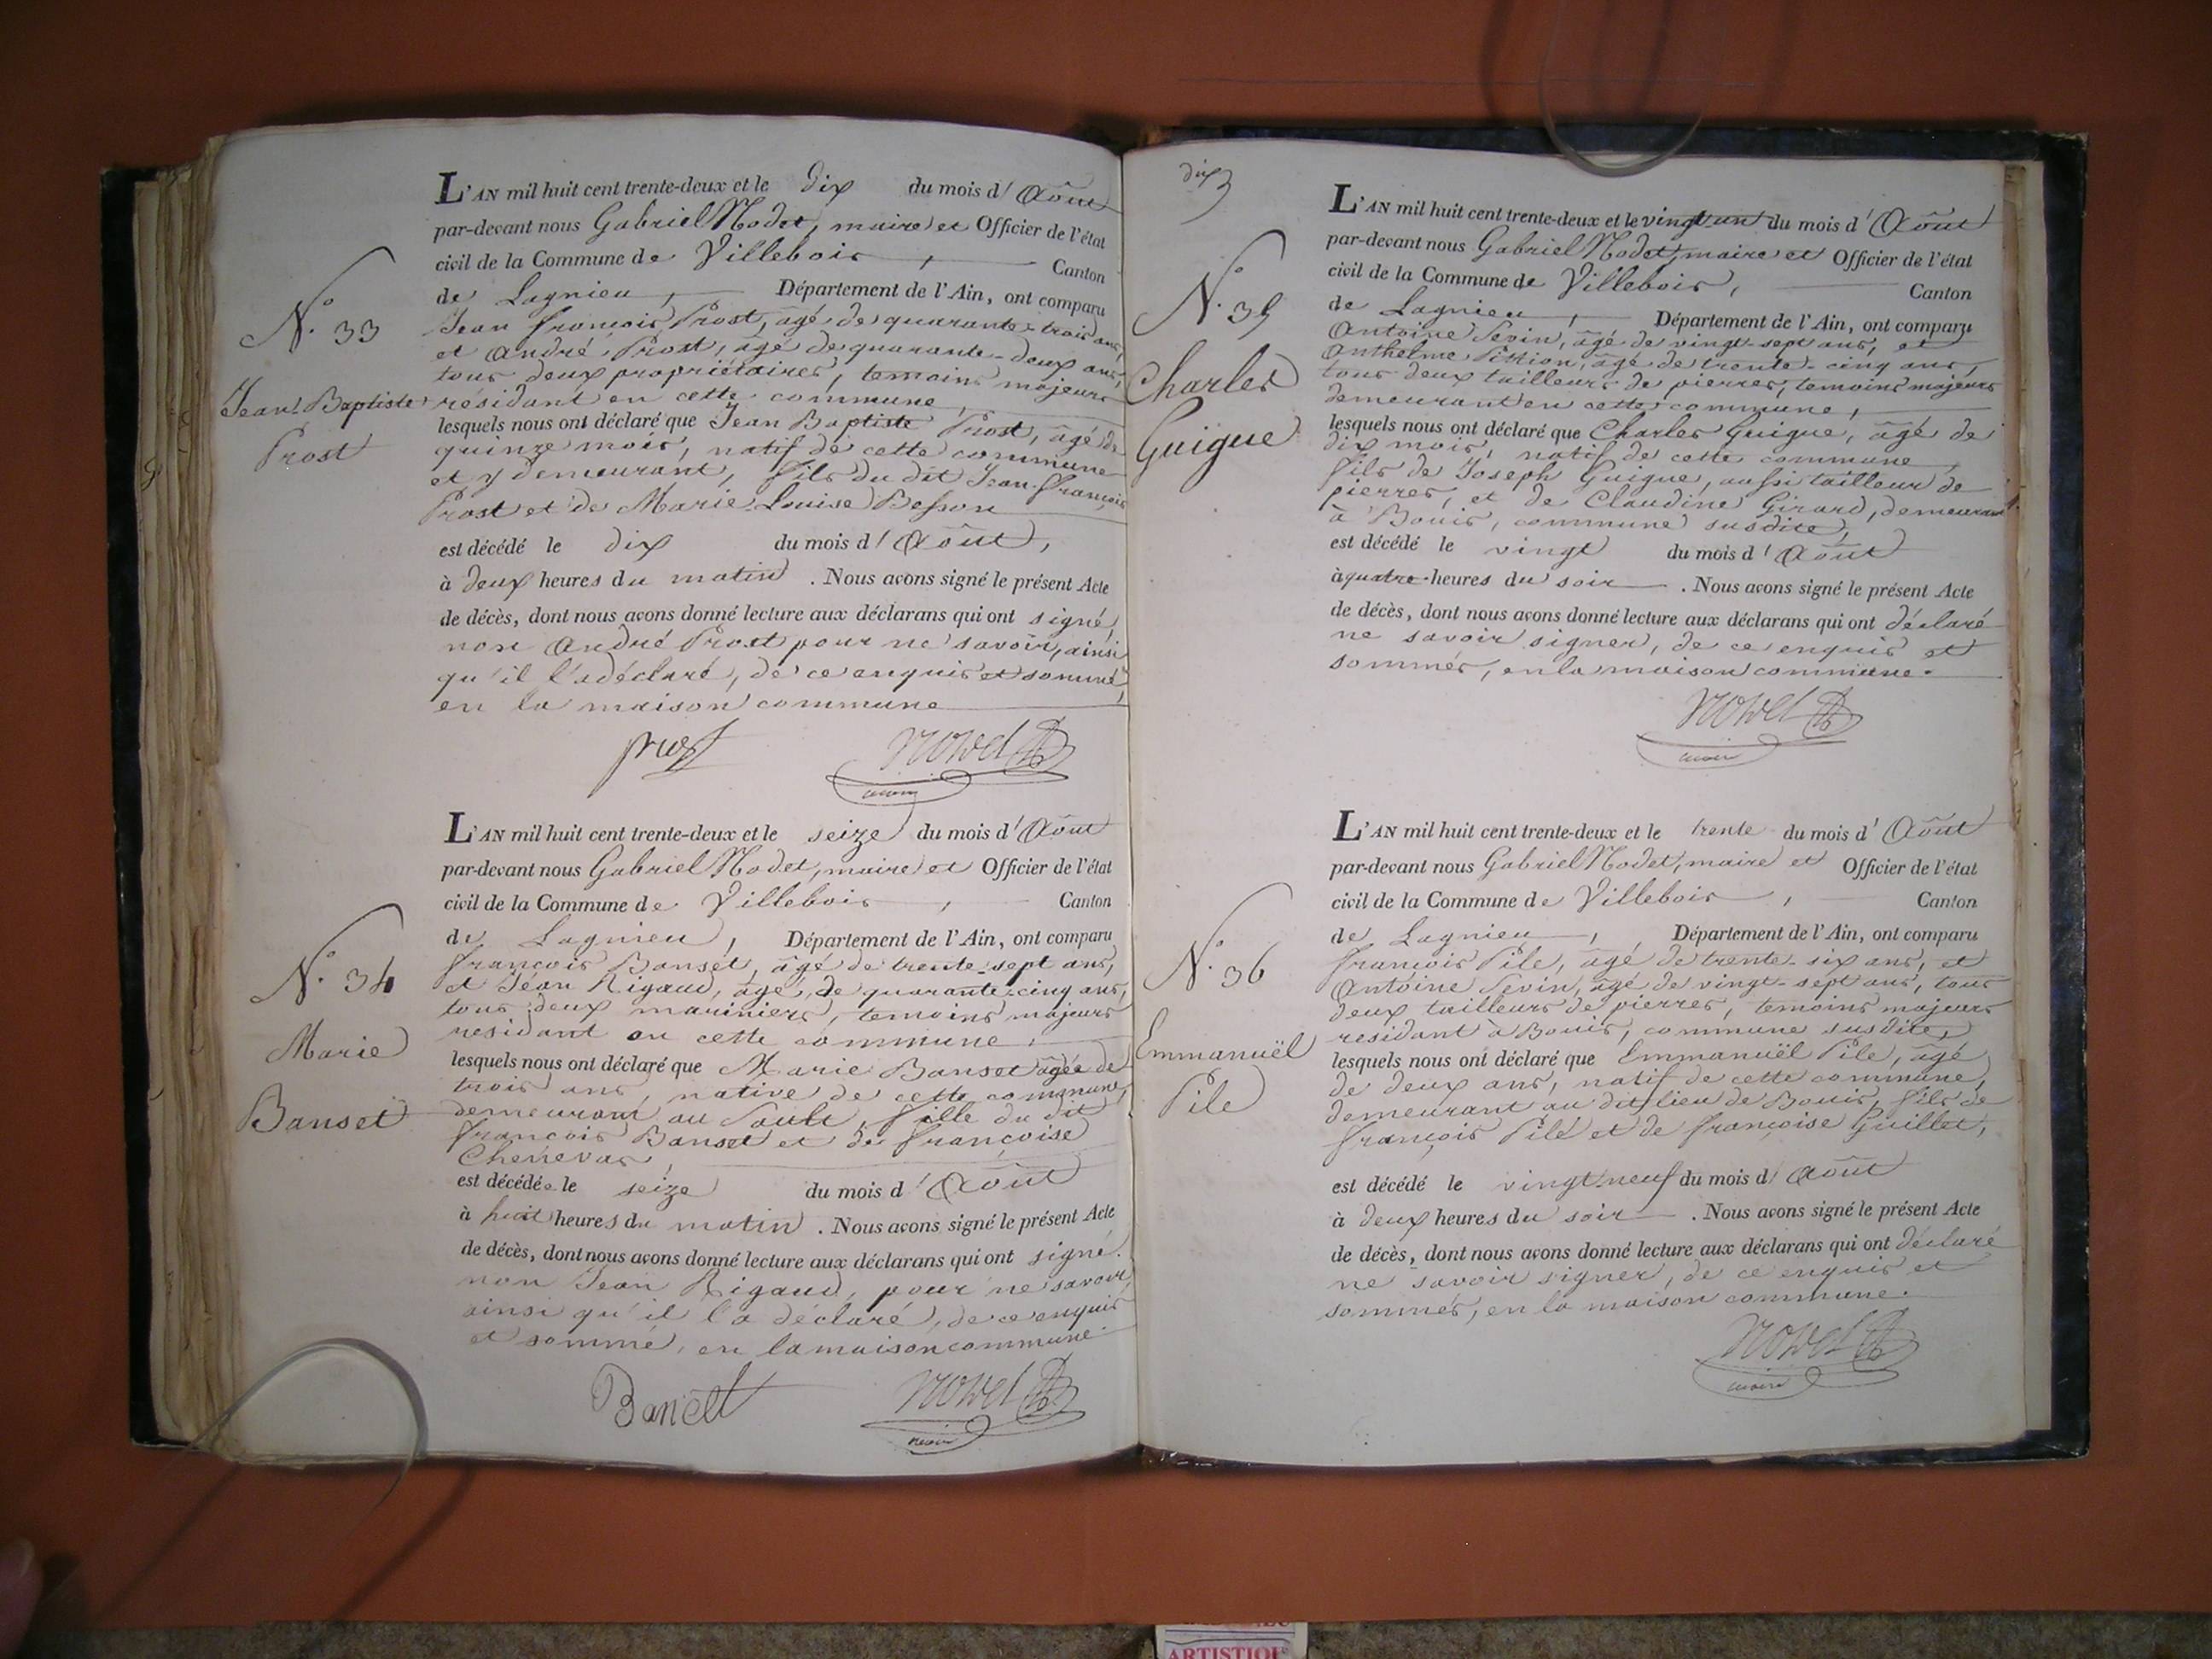 N.° 33
Jean Baptiste
Prost
L'AN mil huit cent trente-deux et le dix du mois d'Août
par-devant nous Gabriel Nodet, maire et Officier de l'état
civil de la Commune de Villebois, Canton
de Lagnieu, Département de l'Ain, ont comparu
Jean François Prost, âgé de quarante-trois ans,
et André Prost, âgé de quarante-deux ans,
tous deux propriétaires, temoins majeurs
residant en cette commune,
lesquels nous ont déclaré que Jean Baptiste Prost, âgé de
quinze mois, natif de cette commune
et y demeurant, fils du dit Jean-François
Prost et de Marie Louise Besson
est décédé le dix du mois d'Août,
à deux heures du matin. Nous avons signé le présent Acte
de décès, dont nous avons donné lecture aux déclarans qui ont signé,
non André Prost pour ne savoir, ainsi
qu'il l'a déclaré, de ce enquis et sommé,
en la maison commune
prost Nodet
maire
N.° 34
Marie
Banset
L'AN mil huit cent trente-deux et le seize du mois d'Août
par-devant nous Gabriel Nodet, maire et Officier de l'état
civil de la Commune de Villebois, Canton
de Lagnieu, Département de l'Ain, ont comparu
françois Banset, âgé de trente-sept ans,
et Jean Rigaud, âgé, de quarante-cinq ans,
tous deux mariniers, temoins majeurs
residant en cette commune,
lesquels nous ont déclaré que Marie Banset âgée de
trois ans, native de cette commune,
demeurant au Sault, fille du dit
françois Banset et de françoise
Chenevas,
est décédée le seize du mois d'Août
à huit heures du matin. Nous avons signé le présent Acte
de décès, dont nous avons donné lecture aux déclarans qui ont signé.
non Jean Rigaud, pour ne savoir,
ainsi qu'il l'a déclaré, de ce enquis
et sommé, en la maison commune.
Banset Nodet
maire
dix
N.° 35
Charles
Guigue
L'AN mil huit cent trente-deux et le vingt un du mois d'Août
par-devant nous Gabriel Nodet, maire et Officier de l'état
civil de la Commune de Villebois, Canton
de Lagnieu, Département de l'Ain, ont comparu
Antoine Sevin, âgé de vingt-sept ans, et
Anthelme Pittion, âgé de trente-cinq ans,
tous deux tailleurs de pierres, temoins majeurs
demeurant en cette commune,
lesquels nous ont déclaré que Charles Guigue, âgé de
dix mois, natif de cette commune,
fils de Joseph Guigue, aussi tailleur de
pierres, et de Claudine Girard, demeurant
à Bouis, commune susdite,
est décédé le vingt du mois d'Août
à quatre heures du soir. Nous avons signé le présent Acte
de décès, dont nous avons donné lecture aux déclarans qui ont déclaré
ne savoir signer, de ce enquis et
sommés, en la maison commune.
Nodet
maire
N.° 36
Emmanuël
Pile
L'AN mil huit cent trente-deux et le trente du mois d'Août
par-devant nous Gabriel Nodet, maire et Officier de l'état
civil de la Commune de Villebois, Canton
de Lagnieu, Département de l'Ain, ont comparu
françois Pile, âgé de trente-six ans, et
Antoine Sevin, âgé de vingt-sept ans, tous
deux tailleurs de pierres, temoins majeurs
residant à Bouis, commune susdite,
lesquels nous ont déclaré que Emmanuël Pile, âgé
de deux ans, natif de cette commune,
demeurant au dit lieu de Bouis, fils de
françois Pile et de françoise Guillet,
est décédé le vingt neuf du mois d'Août
à deux heures du soir. Nous avons signé le présent Acte
de décès, dont nous avons donné lecture aux déclarans qui ont déclaré
ne savoir signer, de ce enquis et
sommés, en la maison commune.
Nodet
maire
ARTISTIQUE